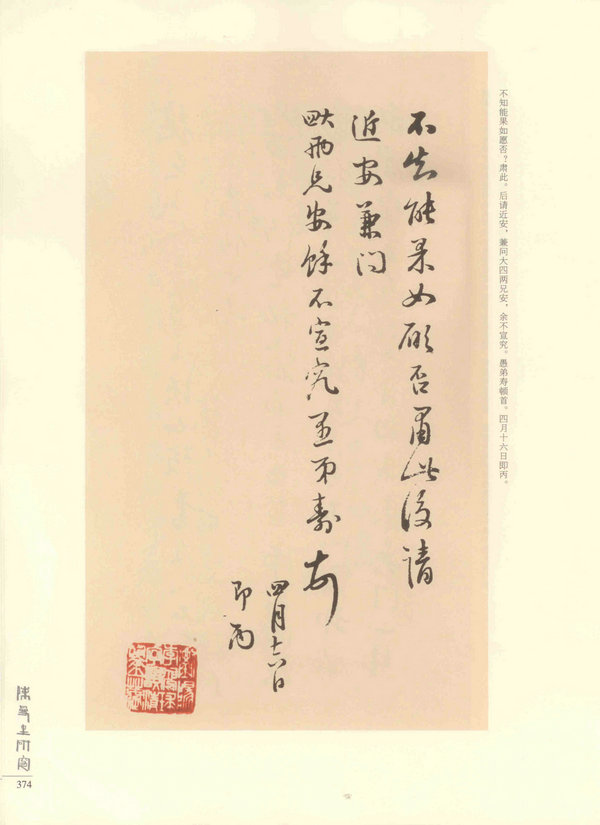 不知能果如愿否?肃此。后请近安,兼问大四两兄安,余不宣究。愚弟寿顿首。四月十六日即丙。
不知能果如願否肅此後請
近安兼问
大四兩兄安餘不宣究愚弟壽頓首
四月十六日
即丙
374